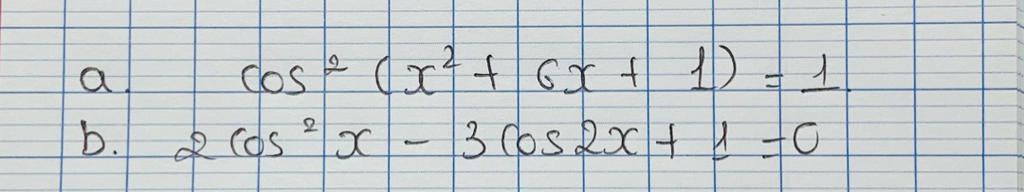 a. cos² (x² + 6x + 1) = 1
b. 2 cos² x - 3 cos 2x + 1 = 0